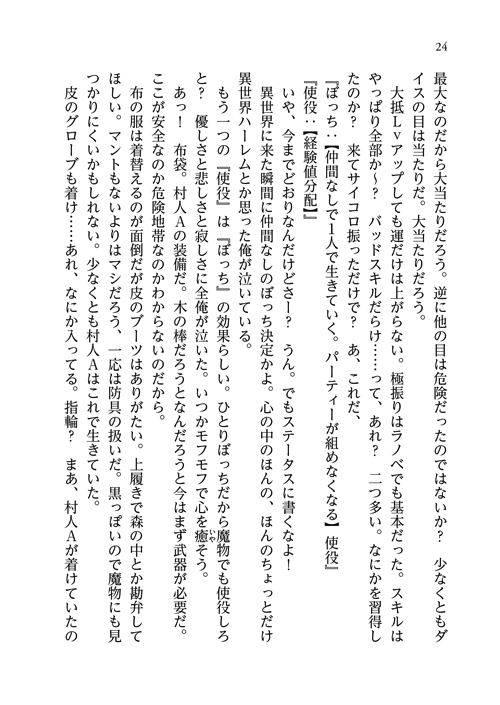 24
最大なのだから大当たりだろう。逆に他の目は危険だったのではないか？　少なくともダ
イスの目は当たりだ。大当たりだろう。
　大抵Ｌｖアップしても運だけは上がらない。極振りはラノベでも基本だった。スキルは
やっぱり全部か～？　バッドスキルだらけ……って、あれ？　二つ多い。なにかを習得し
たのか？　来てサイコロ振っただけで？　あ、これだ、
『ぼっち：【仲間なしで１人で生きていく。パーティーが組めなくなる】使役』
『使役：【経験値分配】』
　いや、今までどおりなんだけどさー？　うん。でもステータスに書くなよ！
　異世界に来た瞬間に仲間なしのぼっち決定かよ。心の中のほんの、ほんのちょっとだけ
異世界ハーレムとか思った俺が泣いている。
　もう一つの『使役』は『ぼっち』の効果らしい。ひとりぼっちだから魔物でも使役しろ
と？　優しさと悲しさと寂しさに全俺が泣いた。いつかモフモフで心を癒いやそう。
　あっ！　布袋。村人Ａの装備だ。木の棒だろうとなんだろうと今はまず武器が必要だ。
ここが安全なのか危険地帯なのかわからないのだから。
　布の服は着替えるのが面倒だが皮のブーツはありがたい。上履きで森の中とか勘弁して
ほしい。マントもないよりはマシだろう、一応は防具の扱いだ。黒っぽいので魔物にも見
つかりにくいかもしれない。少なくとも村人Ａはこれで生きていた。
　皮のグローブも着け……あれ、なにか入ってる。指輪？　まあ、村人Ａが着けていたの